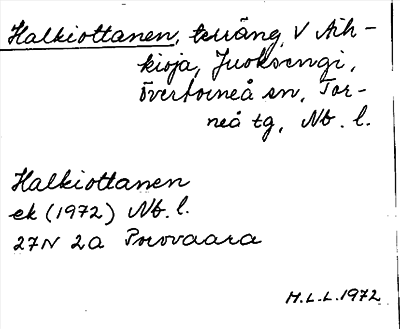 Halkiottanen, terräng, V Aih-
kioja, Juoksengi,
övertorneå sn, Tor-
neå tg, Nb. l.
Halkiottanen
ek (1972) Nb. l.
27N 2a Porovaara
H.L.L. 1972